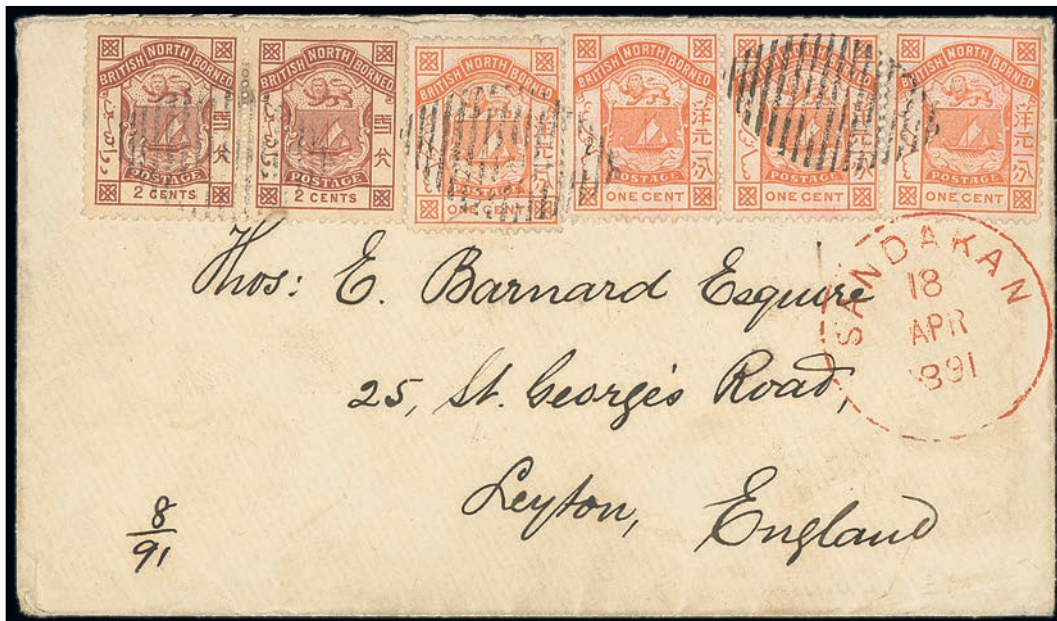 BRITISH NORTH BORNEO
POSTAGE
2 CENTS
BRITISH NORTH BORNEO
POSTAGE
2 CENTS
BRITISH NORTH BORNEO
POSTAGE
ONE CENT
BRITISH NORTH BORNEO
洋元一分
POSTAGE
ONE CENT
POSTAGE
ONE CENT
BRITISH NORTH BORNEO
洋元一分
POSTAGE
ONE CENT
SANDAKAN
18
APR
1891
Thos: E. Barnard Esquire
25, St. George's Road,
Leyton, England
8
91